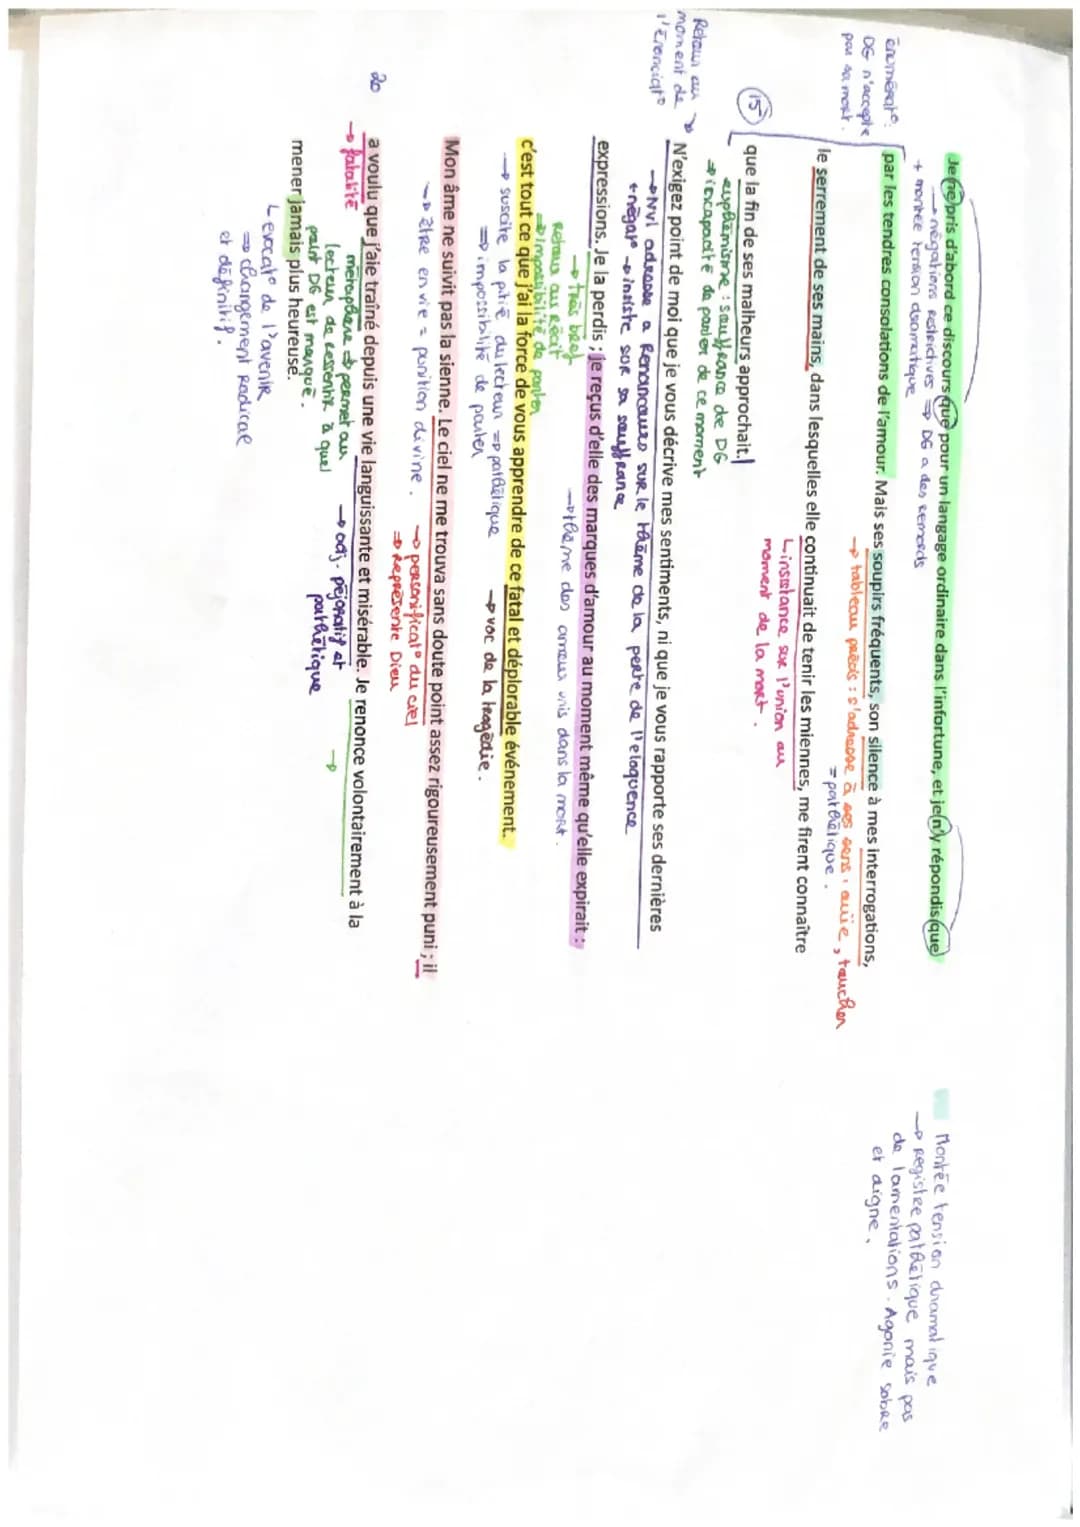 Je ne pris d'abord ce discours que pour un langage ordinaire dans l'infortune, et je n'y répondis que
→ négations restrictives ⇒ DG a des remords
+ montée tension dramatique
énumérat°:
DG n'accepte
pas sa mort.
par les tendres consolations de l'amour. Mais ses soupirs fréquents, son silence à mes interrogations,
→ tableau précis : s'adresse à ses sens : ouïe, toucher
= pathétique.
le serrement de ses mains, dans lesquelles elle continuait de tenir les miennes, me firent connaître
↳ insistance sur l'union au
moment de la mort.
15
que la fin de ses malheurs approchait.
euphémisme : souffrance de DG
⇒ incapacité de parler de ce moment
Retour au
moment de
l'énonciat°
N'exigez point de moi que je vous décrive mes sentiments, ni que je vous rapporte ses dernières
→ Nvl adresse a Renoncourt sur le thème de la perte de l'eloquence
+ négat° → insiste sur sa souffrance
expressions. Je la perdis ; je reçus d'elle des marques d'amour au moment même qu'elle expirait :
→ très bref
Retour au récit
→ theme des amours unis dans la mort.
⇒ impossibilité de parler
c'est tout ce que j'ai la force de vous apprendre de ce fatal et déplorable événement.
→ suscite la pitié du lecteur ⇒ pathétique
⇒ impossibilité de parler
→ voc de la tragédie.
Mon âme ne suivit pas la sienne. Le ciel ne me trouva sans doute point assez rigoureusement puni ; il
→ être en vie = punition divine.
→ personnificat° du ciel
⇒ Représente Dieu
20
a voulu que j'aie traîné depuis une vie languissante et misérable. Je renonce volontairement à la
→ fatalité
métaphore ⇒ permet au
lecteur de ressentir à quel
point DG est marqué.
→ adj. péjoratif et
pathétique
mener jamais plus heureuse.
↳ evocat° de l'avenir
⇒ changement radical
et définitif.
Montée tension dramatique
→ Registre pathétique mais pas
de lamentations. Agonie sobre
et digne.